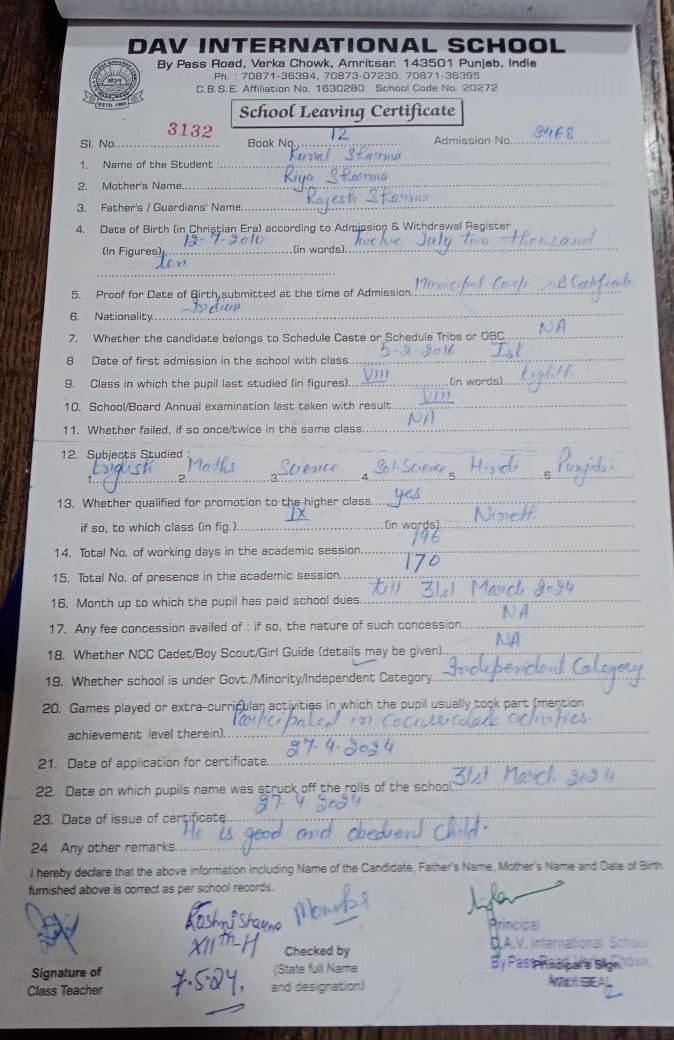 DAV INTERNATIONAL SCHOOL
By Pass Road, Verka Chowk, Amritsar. 143501 Punjab, India
Ph. : 70871-36394, 70873-07230, 70871-36395
C.B.S.E. Affiliation No. 1630280 School Code No. 20272
School Leaving Certificate
Sl. No. 3132 Book No. 12 Admission No. 9468
1. Name of the Student : Kunal Sharma
2. Mother's Name Riya Sharma
3. Father's / Guardians' Name Rajesh Sharma
4. Date of Birth (in Christian Era) according to Admission & Withdrawal Register
(In Figures) 12-7-2010 (in words) Twelve July two thousand
ten
5. Proof for Date of Birth submitted at the time of Admission Municipal Corp. Certificate
6. Nationality Indian
7. Whether the candidate belongs to Schedule Caste or Schedule Tribe or OBC NA
8 Date of first admission in the school with class 5-2-2016 Ist
9. Class in which the pupil last studied (in figures) VIII (in words) Eighth
10. School/Board Annual examination last taken with result VIII
11. Whether failed, if so once/twice in the same class NA
12. Subjects Studied :
1. English 2. Maths 3. Science 4. Sol. Science 5. Hindi 6. Punjabi
13. Whether qualified for promotion to the higher class yes
if so, to which class (in fig.) IX (in words) Nineth
14. Total No. of working days in the academic session 196
15. Total No. of presence in the academic session 170
16. Month up to which the pupil has paid school dues till 31st March 2024
17. Any fee concession availed of : if so, the nature of such concession NA
18. Whether NCC Cadet/Boy Scout/Girl Guide (details may be given) NA
19. Whether school is under Govt./Minority/Independent Category Independent Category
20. Games played or extra-curricular activities in which the pupil usually took part (mention
achievement level therein) Participated in cocurricular activities.
21. Date of application for certificate 27.4.2024
22. Date on which pupils name was struck off the rolls of the school 31st March 2024
23. Date of issue of certificate 27.4.2024
24 Any other remarks He is good and obedient child.
I hereby declare that the above information including Name of the Candidate, Father's Name, Mother's Name and Date of Birth
furnished above is correct as per school records.
XIIth-H
7.5.24,
Signature of
Class Teacher
Checked by
(State full Name
and designation)
Principal
D.A.V. International School,
By Pass
Principal's Sign.
SEAL